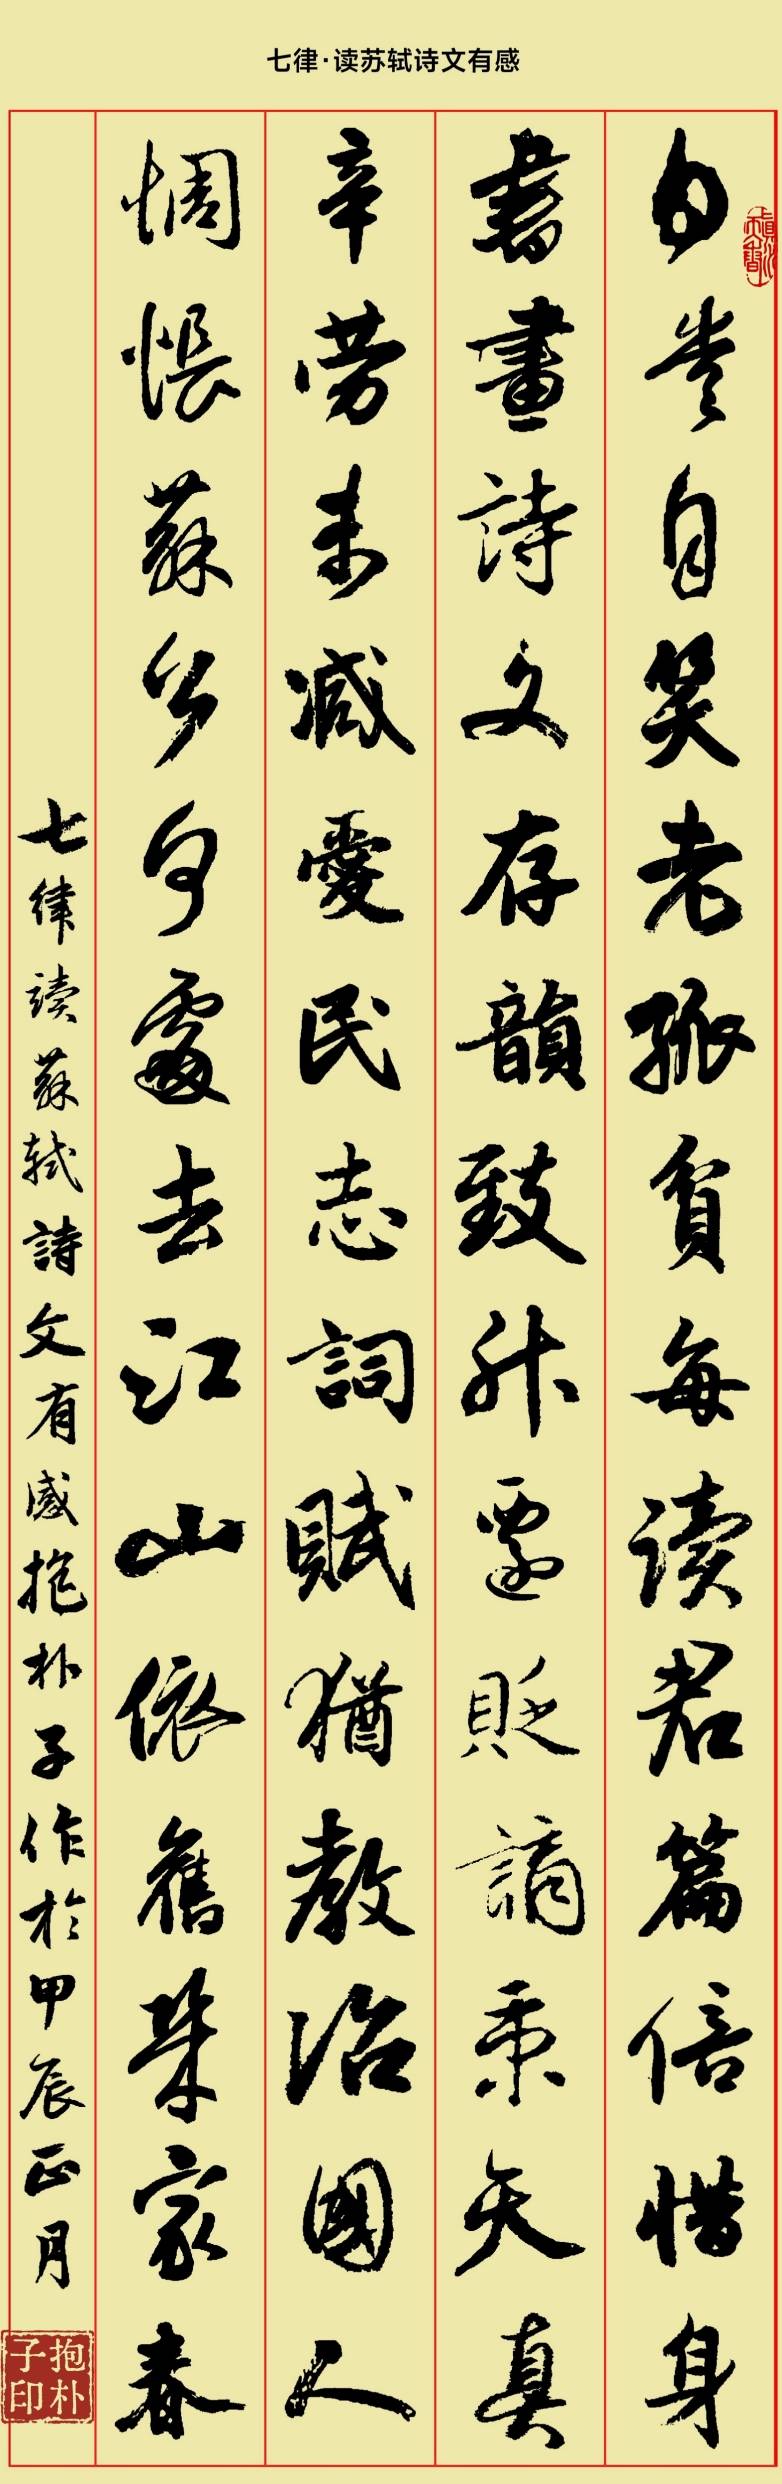 七律·读苏轼诗文有感
自自笑老孤貧每读君篇倍惜身
書畫詩文存韻致升遷貶謫秉天真
辛劳未减愛民志詞賦猶教治國人
惆悵蘇公何處去江山依舊家春
七律读蘇軾詩文有感抱朴子作於甲辰正月
抱朴子印